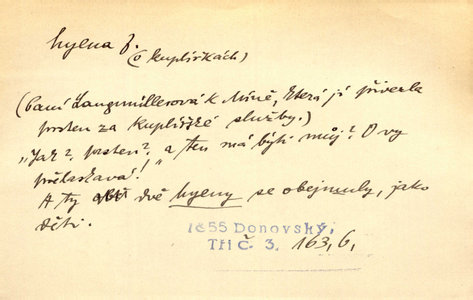 hyena f.
(o kuplířkách)
(Paní Langmillerová k Míně, která jí přivezla
prsten za kuplířské služby.)
„Jak?, prsten?, a ten má býti můj? O vy
přelaskavá!"
A ty dvě hyeny se obejmuly, jako
děti.
1855 Donovský,
Tři č. 3. 163, 6,